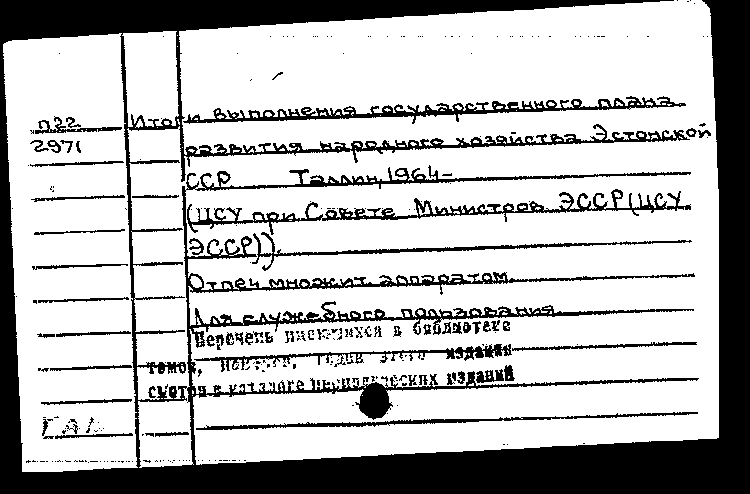 П22 Итоги выполнения государственного плана
2971 развития народного хозяйства Эстонской
ССР Таллин, 1964–
(ЦСУ при Совете Министров ЭССР (ЦСУ
ЭССР)).
Отпеч множит. аппаратом.
Для служебного пользования.
Перечень имеющихся в библиотеке
томов, номеров, годов этого издания
смотри в каталоге периодических изданий